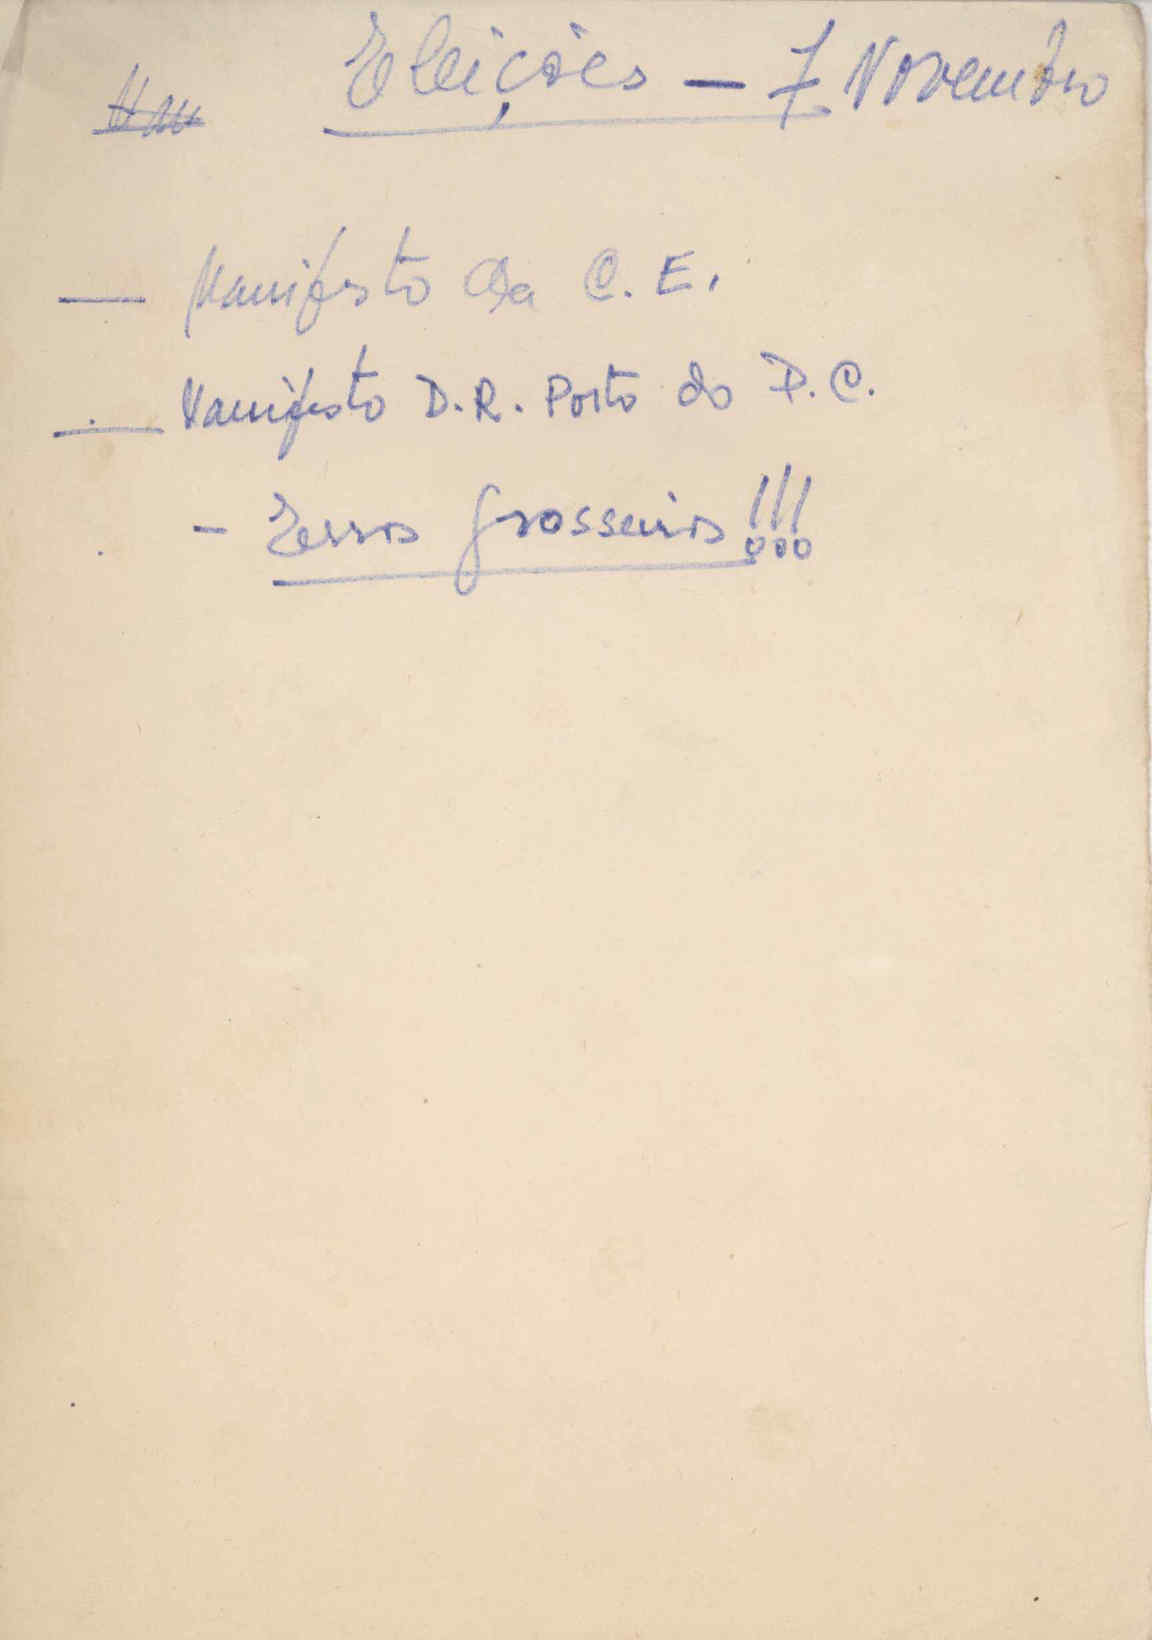 Eleições — 7 Novembro
— Manifesto da C. E.
— Manifesto D. R. Porto do P. C.
- Erros grosseiros!!!